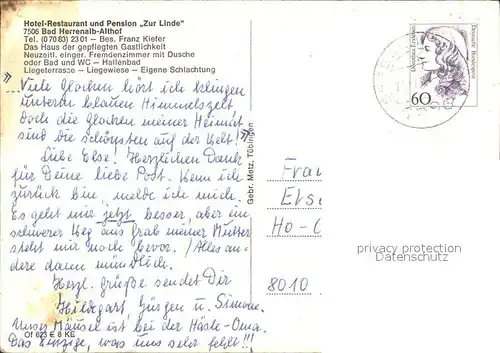 Hotel-Restaurant und Pension „Zur Linde"
7506 Bad Herrenalb-Althof
Tel. (07083) 2301 – Bes. Franz Kiefer
Das Haus der gepflegten Gastlichkeit
Neuzeitl. einger. Fremdenzimmer mit Dusche
oder Bad und WC – Hallenbad
Liegeterrasse – Liegewiese – Eigene Schlachtung
„Viele Glocken hört ich klingen
unterm blauen Himmelszelt
doch die Glocken meiner Heimat
sind die schönsten auf der Welt!"
Liebe Else! Herzlichen Dank
für Deine liebe Post. Wenn ich
zurück bin, melde ich mich.
Es geht mir jetzt besser, aber ein
schwerer Weg ans Grab meiner Mutter
steht mir noch bevor. / Alles an-
dere dann mündlich.
Herzl. Grüße sendet Dir
Hildegart, Jürgen u. Simone.
Unser Mäusel ist bei der Oma.
Das Einzige, was uns sehr fehlt!!!
Of 623 E 8 KE
Gebr. Metz, Tübingen
Deutsche Bundespost
60
Frau
Els
Ho-
8010
privacy protection
Datenschutz